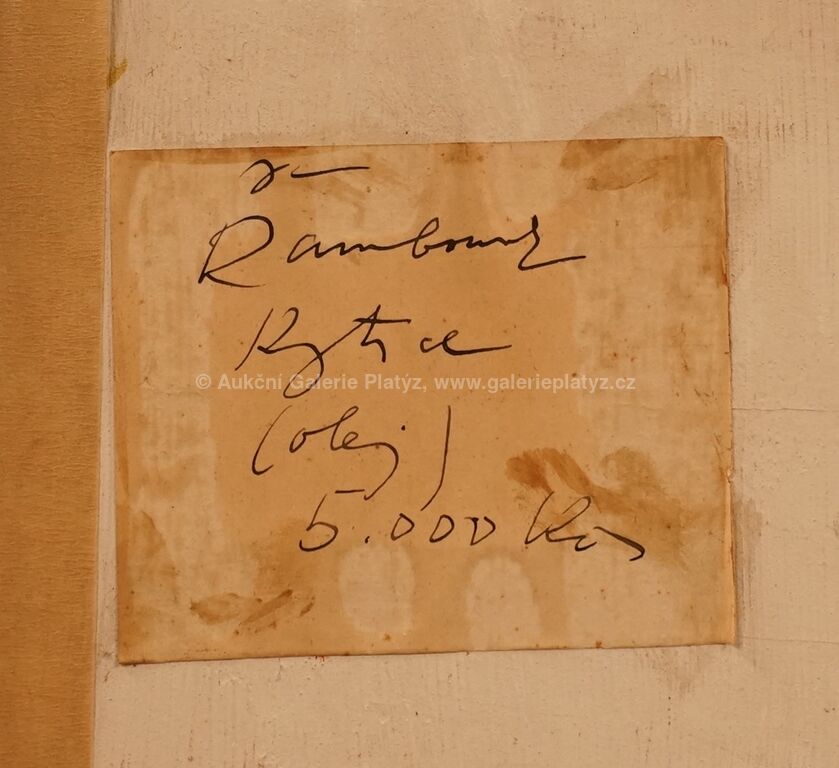 Rambousek
Kytice
© Aukční Galerie Platýz, www.galerieplatyz.cz
(olej)
5.000 Kčs